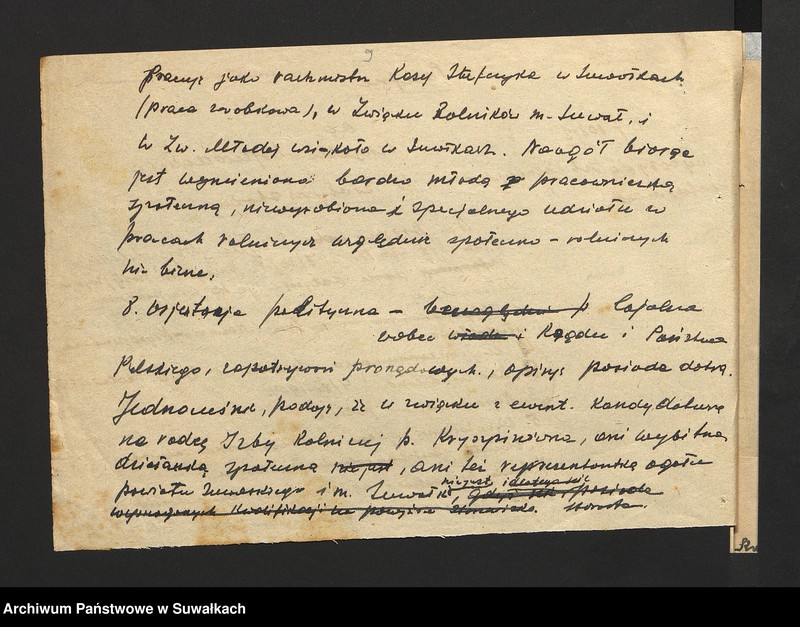 9
Pracuje jako rachmistrz Kasy Stefczyka w Suwałkach
(praca zarobkowa), w Związku Rolników m. Suwał., i
w Zw. Młodej wsi, koło w Suwałkach. Naogół biorąc
jest wymieniona bardzo młodą pracowniczką
społeczną, niewyrobioną i specjalnego udziału w
pracach rolniczych względnie społeczno-rolniczych
nie bierze.
8. orjentacja polityczna – bezwzględnie p. lojalna
wobec władz i Rządu i Państwa
Polskiego, zapatrywań prorządowych., opinję posiada dobrą.
Jednocześnie, podaję, że w związku z ewent. kandydaturą
na radcę Izby Rolniczej p. Kryszpinówna, ani wybitną
działaczką społeczną nie jest, ani też reprezentantką ogółu
powiatu Suwalskiego i m. Suwałki nie jest i
wymaganych kwalifikacji na powyższe stanowisko. Starosta.
Archiwum Państwowe w Suwałkach